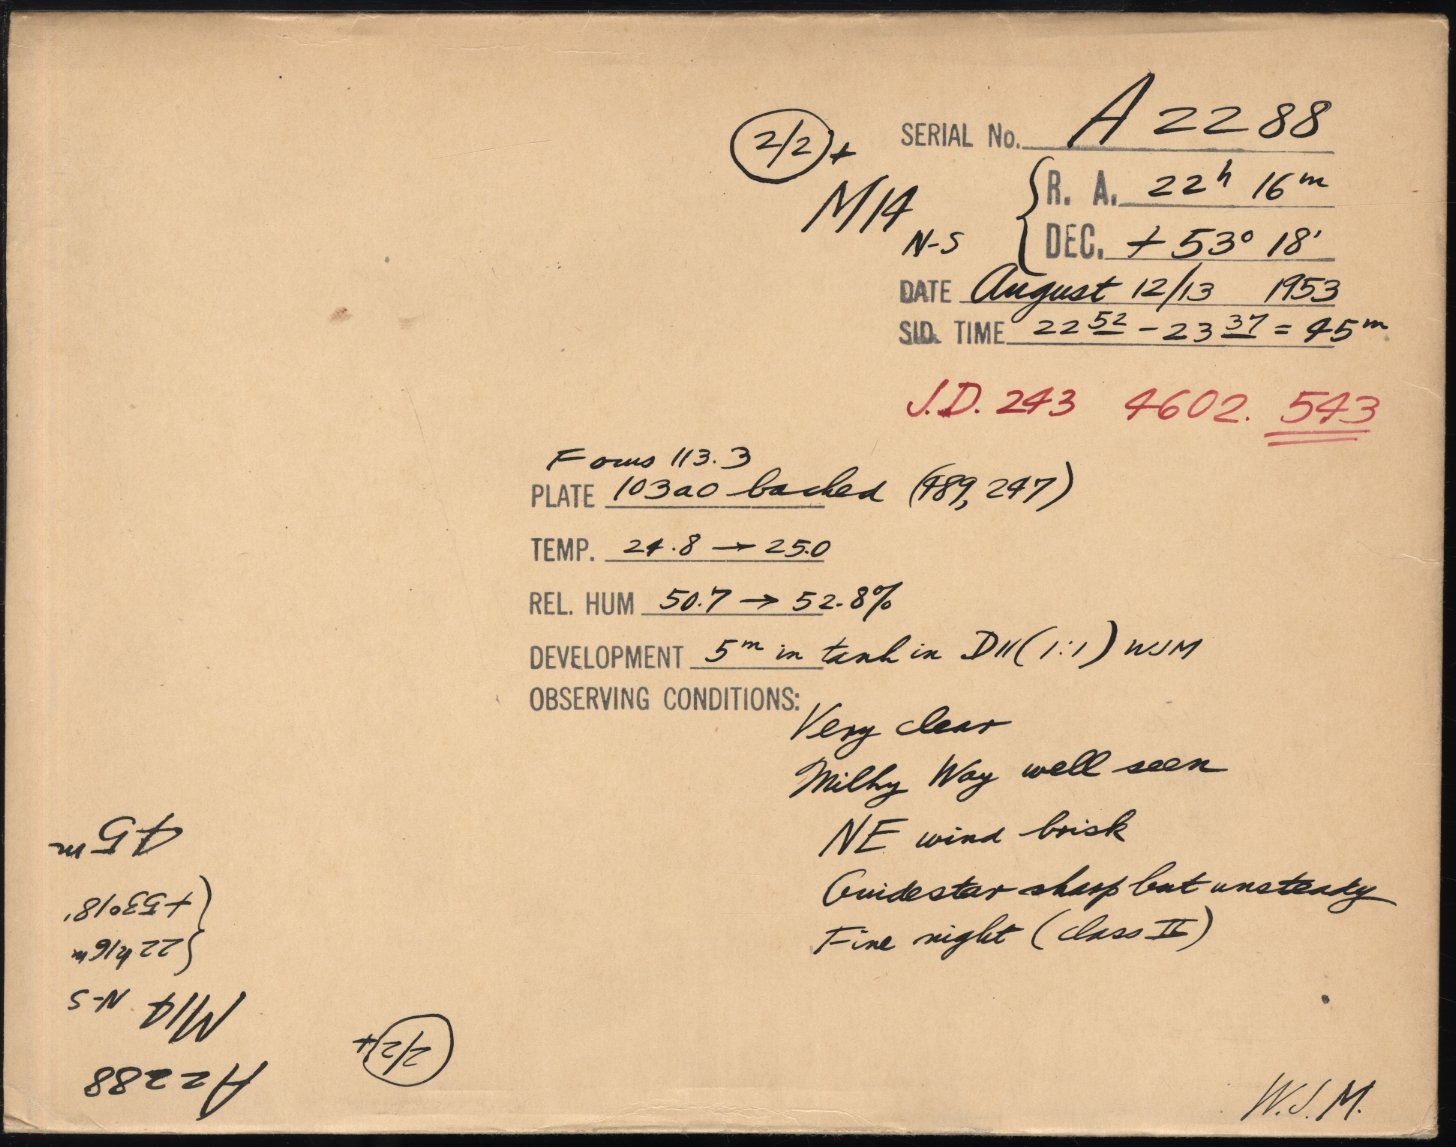 2/2 +
SERIAL No. A2288
M14 N-S
R. A. 22h 16m
DEC. +53° 18'
DATE August 12/13 1953
SID. TIME 22 52 - 23 37 = 45m
J.D. 243 4602.543
Focus 113.3
PLATE 103aO backed (489, 247)
TEMP. 24.8 → 25.0
REL. HUM 50.7 → 52.8%
DEVELOPMENT 5m in tank in D11 (1:1) WJM
OBSERVING CONDITIONS:
Very clear
Milky Way well seen
NE wind brisk
Guidestar sharp but unsteady
Fine night (class II)
W.J.M.
A2288
2/2+
M14 N-S
22h16m
+53°18'
45m